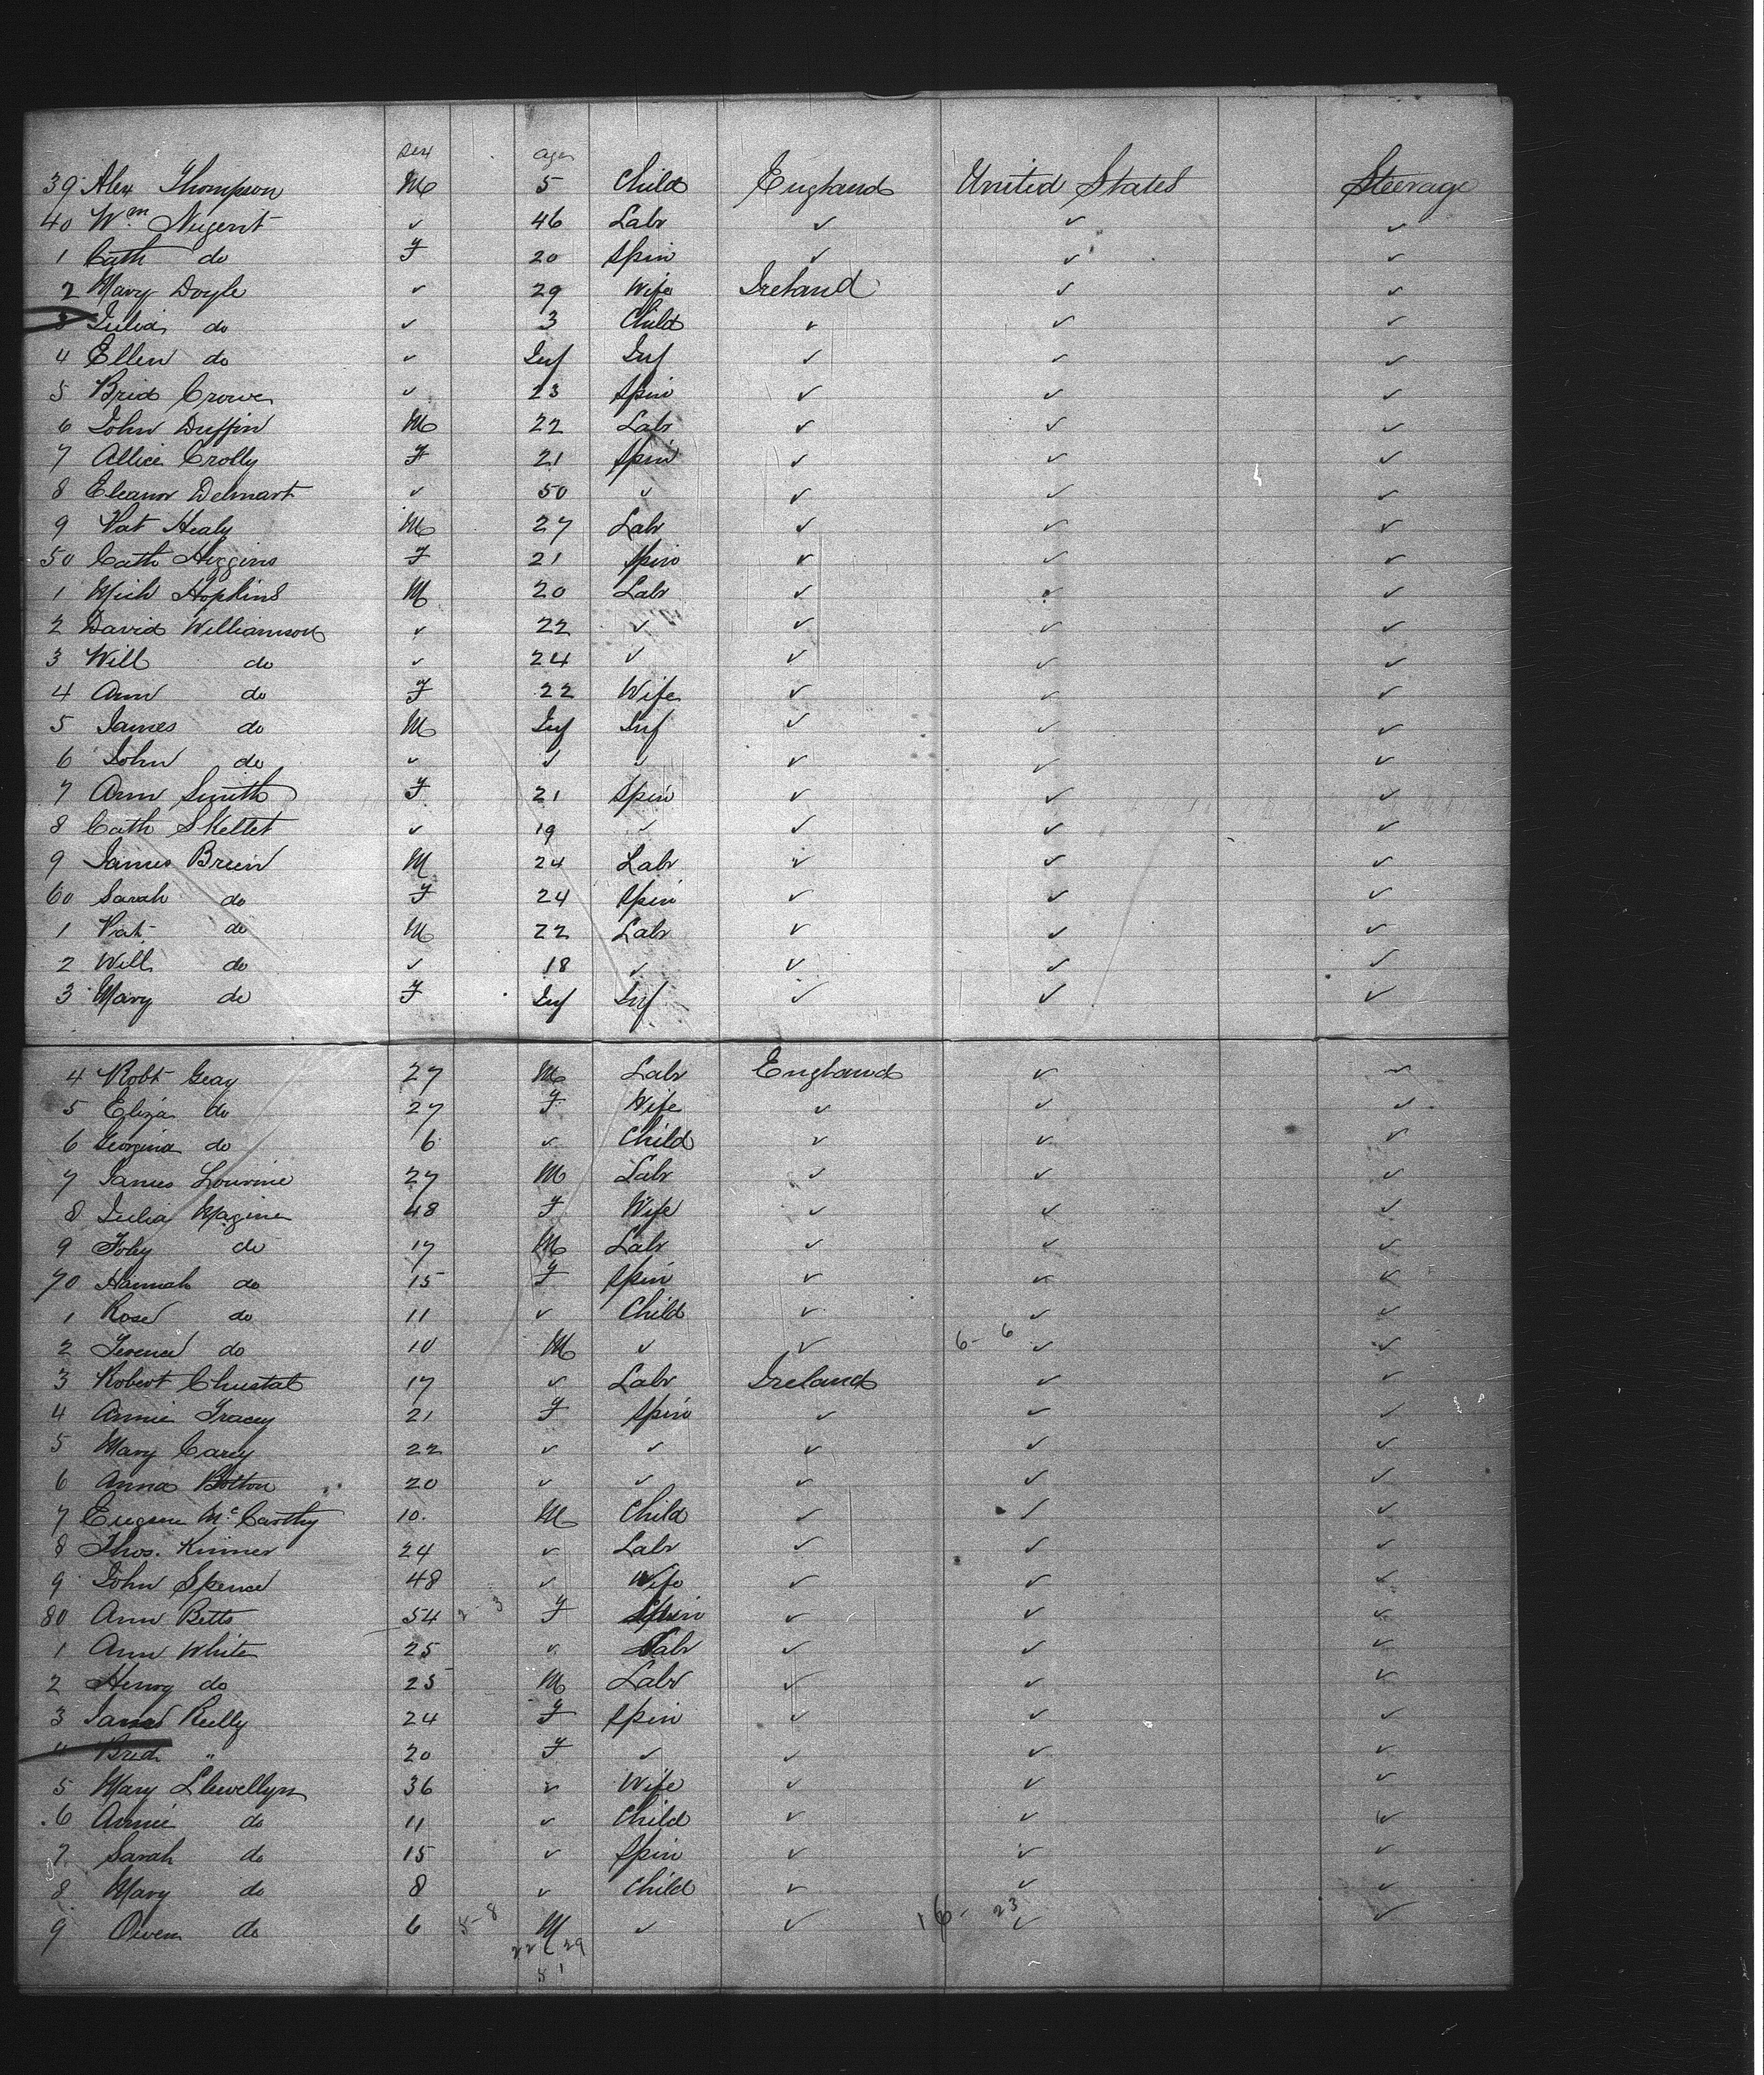 Sex Ages
39 Alex Thompson M 5 Child England United States Steerage
40 Wm Nugent ✓ 46 Labr ✓ ✓ ✓
1 Cath do F 20 Spin ✓ ✓ ✓
2 Mary Doyle ✓ 29 Wife Ireland ✓ ✓
3 Julia do ✓ 3 Child ✓ ✓ ✓
4 Ellen do ✓ Inf Inf ✓ ✓ ✓
5 Brid Crowe ✓ 23 Spin ✓ ✓ ✓
6 John Duffin M 22 Labr ✓ ✓ ✓
7 Allice Crolly F 21 Spin ✓ ✓ ✓
8 Eleanor Delmart ✓ 50 ✓ ✓ ✓ ✓
9 Pat Healy M 27 Labr ✓ ✓ ✓
50 Cath Higgins F 21 Spin ✓ ✓ ✓
1 Mich Hopkins M 20 Labr ✓ ✓ ✓
2 David Williamson ✓ 22 ✓ ✓ ✓ ✓
3 Will do ✓ 24 ✓ ✓ ✓ ✓
4 Ann do F 22 Wife ✓ ✓ ✓
5 James do M Inf Inf ✓ ✓ ✓
6 John do ✓ ✓ ✓ ✓ ✓ ✓
7 Ann Smith F 21 Spin ✓ ✓ ✓
8 Cath Skellet ✓ 19 ✓ ✓ ✓ ✓
9 James Brein M 24 Labr ✓ ✓ ✓
60 Sarah do F 24 Spin ✓ ✓ ✓
1 Pat do M 22 Labr ✓ ✓ ✓
2 Will do ✓ 18 ✓ ✓ ✓ ✓
3 Mary do F Inf Inf ✓ ✓ ✓
4 Robt Geay 27 M Labr England ✓ ✓
5 Eliza do 27 F Wife ✓ ✓ ✓
6 Georgina do 6 ✓ Child ✓ ✓ ✓
7 James Lourine 27 M Labr ✓ ✓ ✓
8 Julia Magine 48 F Wife ✓ ✓ ✓
9 Foley do 17 M Labr ✓ ✓ ✓
70 Hannah do 15 F Spin ✓ ✓ ✓
1 Rose do 11 ✓ Child ✓ ✓ ✓
2 Terence do 10 M ✓ ✓ 6-6 ✓ ✓
3 Robert Chustal 17 ✓ Labr Ireland ✓ ✓
4 Annie Tracey 21 F Spin ✓ ✓ ✓
5 Mary Carey 22 ✓ ✓ ✓ ✓ ✓
6 Anna Botton 20 ✓ ✓ ✓ ✓ ✓
7 Eugene McCarthy 10. M Child ✓ ✓ ✓
8 Thos. Kinner 24 ✓ Labr ✓ ✓ ✓
9 John Spence 48 ✓ Wife ✓ ✓ ✓
80 Ann Betts 54 2-3 F Spin ✓ ✓ ✓
1 Ann White 25 ✓ Labr ✓ ✓ ✓
2 Henry do 25 M Labr ✓ ✓ ✓
3 Reilly 24 F Spin ✓ ✓ ✓
4 Brid " 20 F ✓ ✓ ✓ ✓
5 Mary Llewellyn 36 ✓ Wife ✓ ✓ ✓
6 Annie do 11 ✓ Child ✓ ✓ ✓
7 Sarah do 15 ✓ Spin ✓ ✓ ✓
8 Mary do 8 ✓ Child ✓ ✓ ✓
9 Owen do 6 5-8 M ✓ ✓ 16-23 ✓ ✓
22 29
51